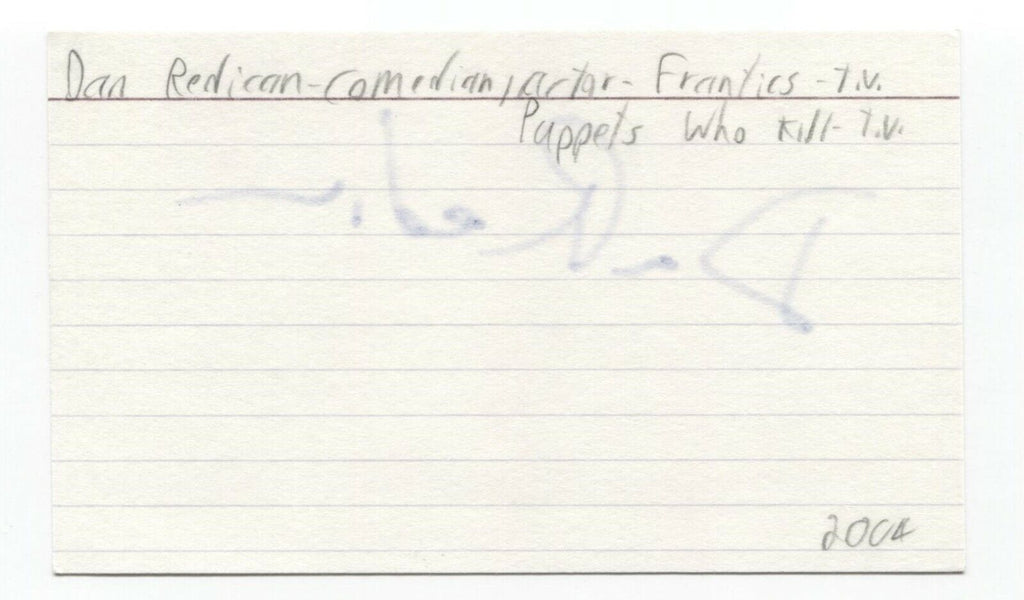 Dan Redican-Comedian, actor- Frantics - T.V.
Puppets Who Kill- T.V.
2004